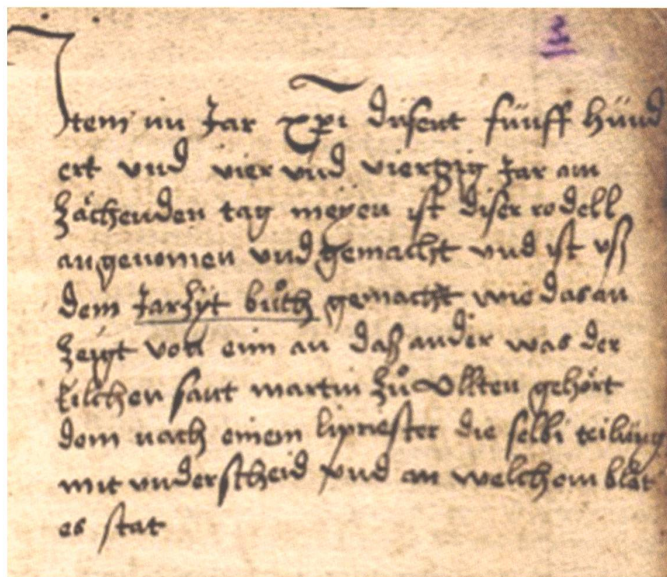 3
Item im Jar xpi dusent fünff hund
ert und vier und vierzig Jar am
zächenden tag meyen ist diser rodell
angenomen und gemacht und ist uß
dem Jarzyt buͦch gemacht wie das an
zeigt von eim an daß ander was der
kilchen sant martin zuͦ Ollten gehört
dem nach einem lipriester die selbi teilung
mit underscheid und an welchem blat
es stat